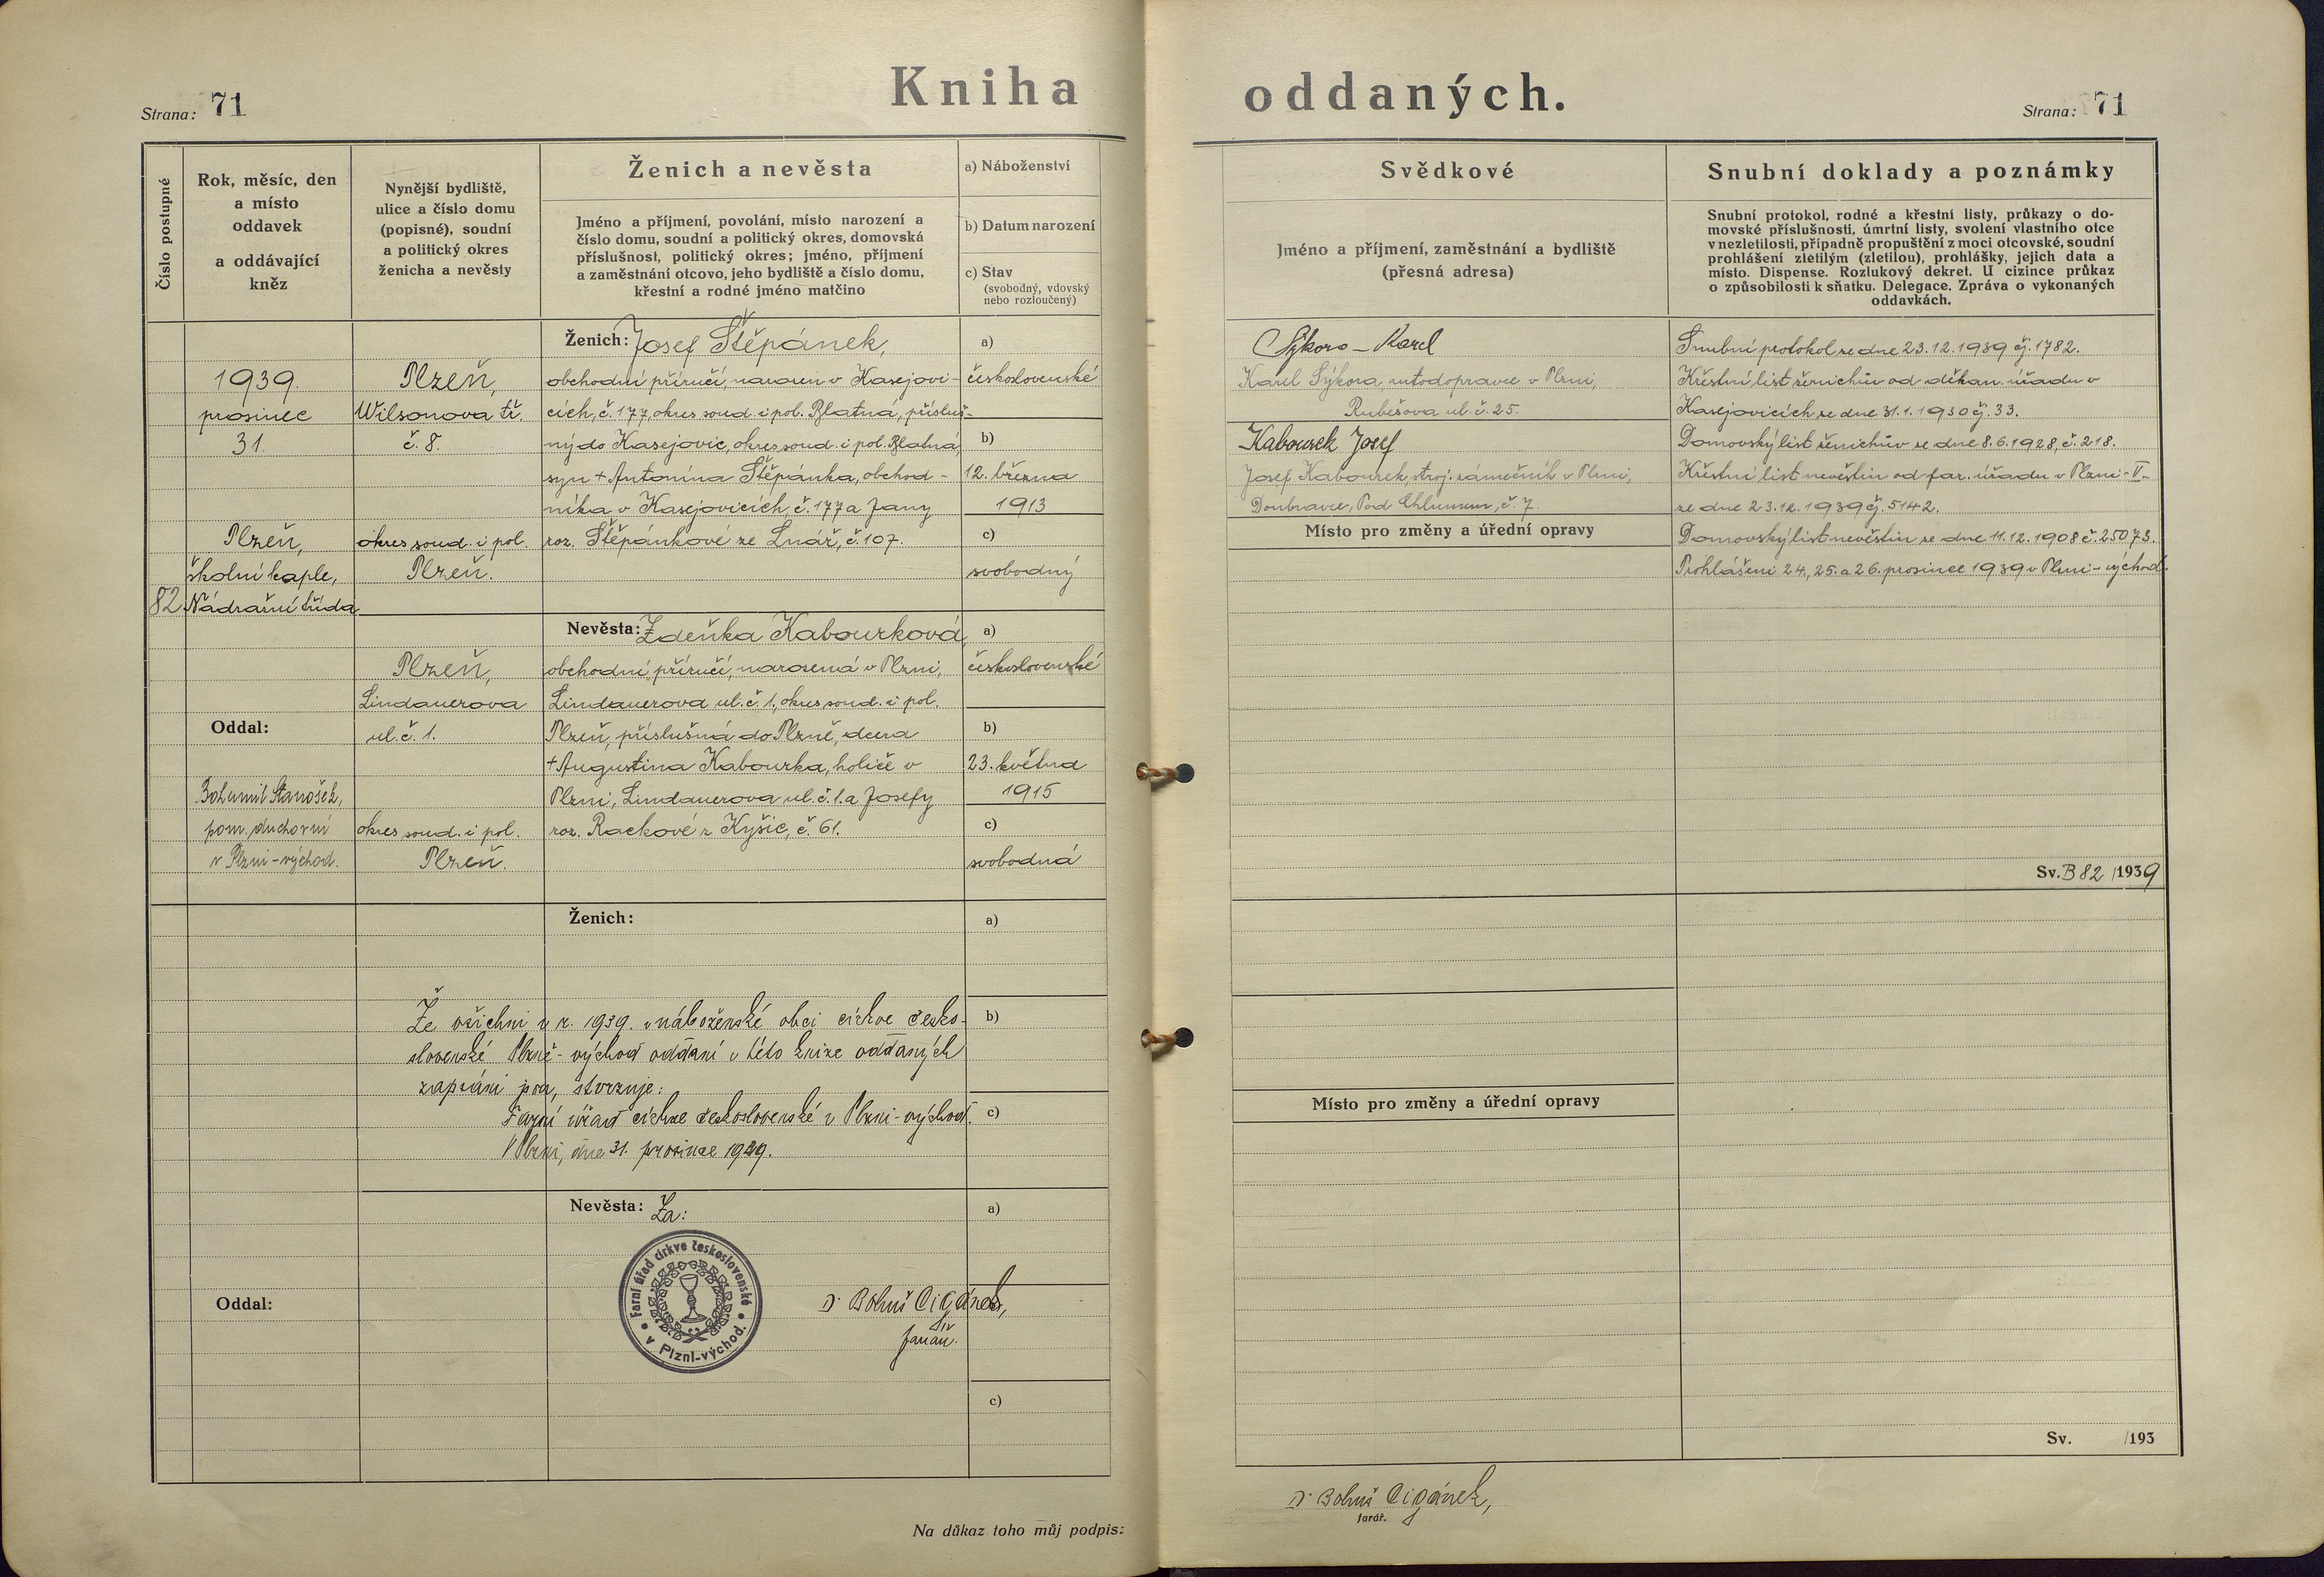 Kniha oddaných.
Strana: 71
Strana: 71
Číslo postupné
Rok, měsíc, den
a místo
oddavek
a oddávající
kněz
Nynější bydliště,
ulice a číslo domu
(popisné), soudní
a politický okres
ženicha a nevěsty
Ženich a nevěsta
Jméno a příjmení, povolání, místo narození a
číslo domu, soudní a politický okres, domovská
příslušnost, politický okres; jméno, příjmení
a zaměstnání otcovo, jeho bydliště a číslo domu,
křestní a rodné jméno matčino
a) Náboženství
b) Datum narození
c) Stav
(svobodný, vdovský
nebo rozloučený)
Svědkové
Jméno a příjmení, zaměstnání a bydliště
(přesná adresa)
Snubní doklady a poznámky
Snubní protokol, rodné a křestní listy, průkazy o do-
movské příslušnosti, úmrtní listy, svolení vlastního otce
v nezletilosti, případně propuštění z moci otcovské, soudní
prohlášení zletilým (zletilou), prohlášky, jejich data a
místo. Dispense. Rozlukový dekret. U cizince průkaz
o způsobilosti k sňatku. Delegace. Zpráva o vykonaných
oddavkách.
82
1939.
prosinec
31.
Plzeň,
školní kaple,
Nádražní třída
Oddal:
Bohumil Stanošek,
pom. duchovní
v Plzni-východ.
Plzeň,
Wilsonova tř.
č. 8.
okres soud. i pol.
Plzeň.
Plzeň,
Lindauerova
ul. č. 1.
okres soud. i pol.
Plzeň.
Ženich: Josef Štěpánek,
obchodní příručí, narozen v Kasejovi-
cích, č. 177, okres soud. i pol. Blatná, přísluš-
ný do Kasejovic, okres soud. i pol. Blatná,
syn + Antonína Štěpánka, obchod-
níka v Kasejovicích, č. 177 a Jany
roz. Štěpánkové ze Lnář, č. 107.
Nevěsta: Zdeňka Kabourková,
obchodní příručí, narozená v Plzni,
Lindauerova ul. č. 1., okres soud. i pol.
Plzeň, příslušná do Plzně, dcera
+ Augustina Kabourka, holiče v
Plzni, Lindauerova ul. č. 1. a Josefy
roz. Rackové z Kyšic, č. 61.
a)
československé
b)
12. března
1913
c)
svobodný
a)
československé
b)
23. května
1915
c)
svobodná
Sýkora - Karel
Karel Sýkora, autodopravce v Plzni,
Rubešova ul. č. 25.
Kabourek Josef
Josef Kabourek, stroj. zámečník v Plzni,
Doubravce, Pod Chlumem, č. 7.
Místo pro změny a úřední opravy
Snubní protokol ze dne 23.12.1939 čj. 1782.
Křestní list ženichův od děkan. úřadu v
Kasejovicích ze dne 31.1.1930 čj. 33.
Domovský list ženichův ze dne 8.6.1928, č. 218.
Křestní list nevěstin od far. úřadu v Plzni-V-
ze dne 23.12.1939 čj. 5142.
Domovský list nevěstin ze dne 11.12.1908 č. 25073.
Prohlášeni 24., 25. a 26. prosince 1939 v Plzni-východ.
Sv. B 82 /1939
Ženich:
a)
Že všichni v r. 1939. v náboženské obci církve česko-
b)
slovenské Plzně-východ oddaní v této knize oddaných
zapsáni jsou, stvrzuje:
Farní úřad církve československé v Plzni-východ.
c)
V Plzni, dne 31. prosince 1939.
Nevěsta: Za:
a)
Farní úřad církve československé
v Plzni-východ.
Oddal:
Dr Bohuš Cigánek,
farář.
c)
Místo pro změny a úřední opravy
Sv. /193
Na důkaz toho můj podpis:
Dr Bohuš Cigánek,
farář.